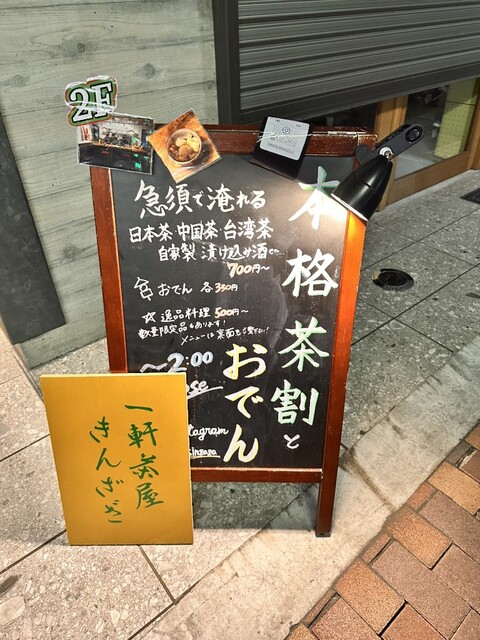 2F
本格茶割と
おでん
急須で淹れる
日本茶・中国茶・台湾茶
自家製 漬け込み酒etc…
700円~
おでん 各350円
☆ 逸品料理 500円~
数量限定品もあります!
メニューは裏面をご覧ください!
~2:00
一軒茶屋
きんざざ